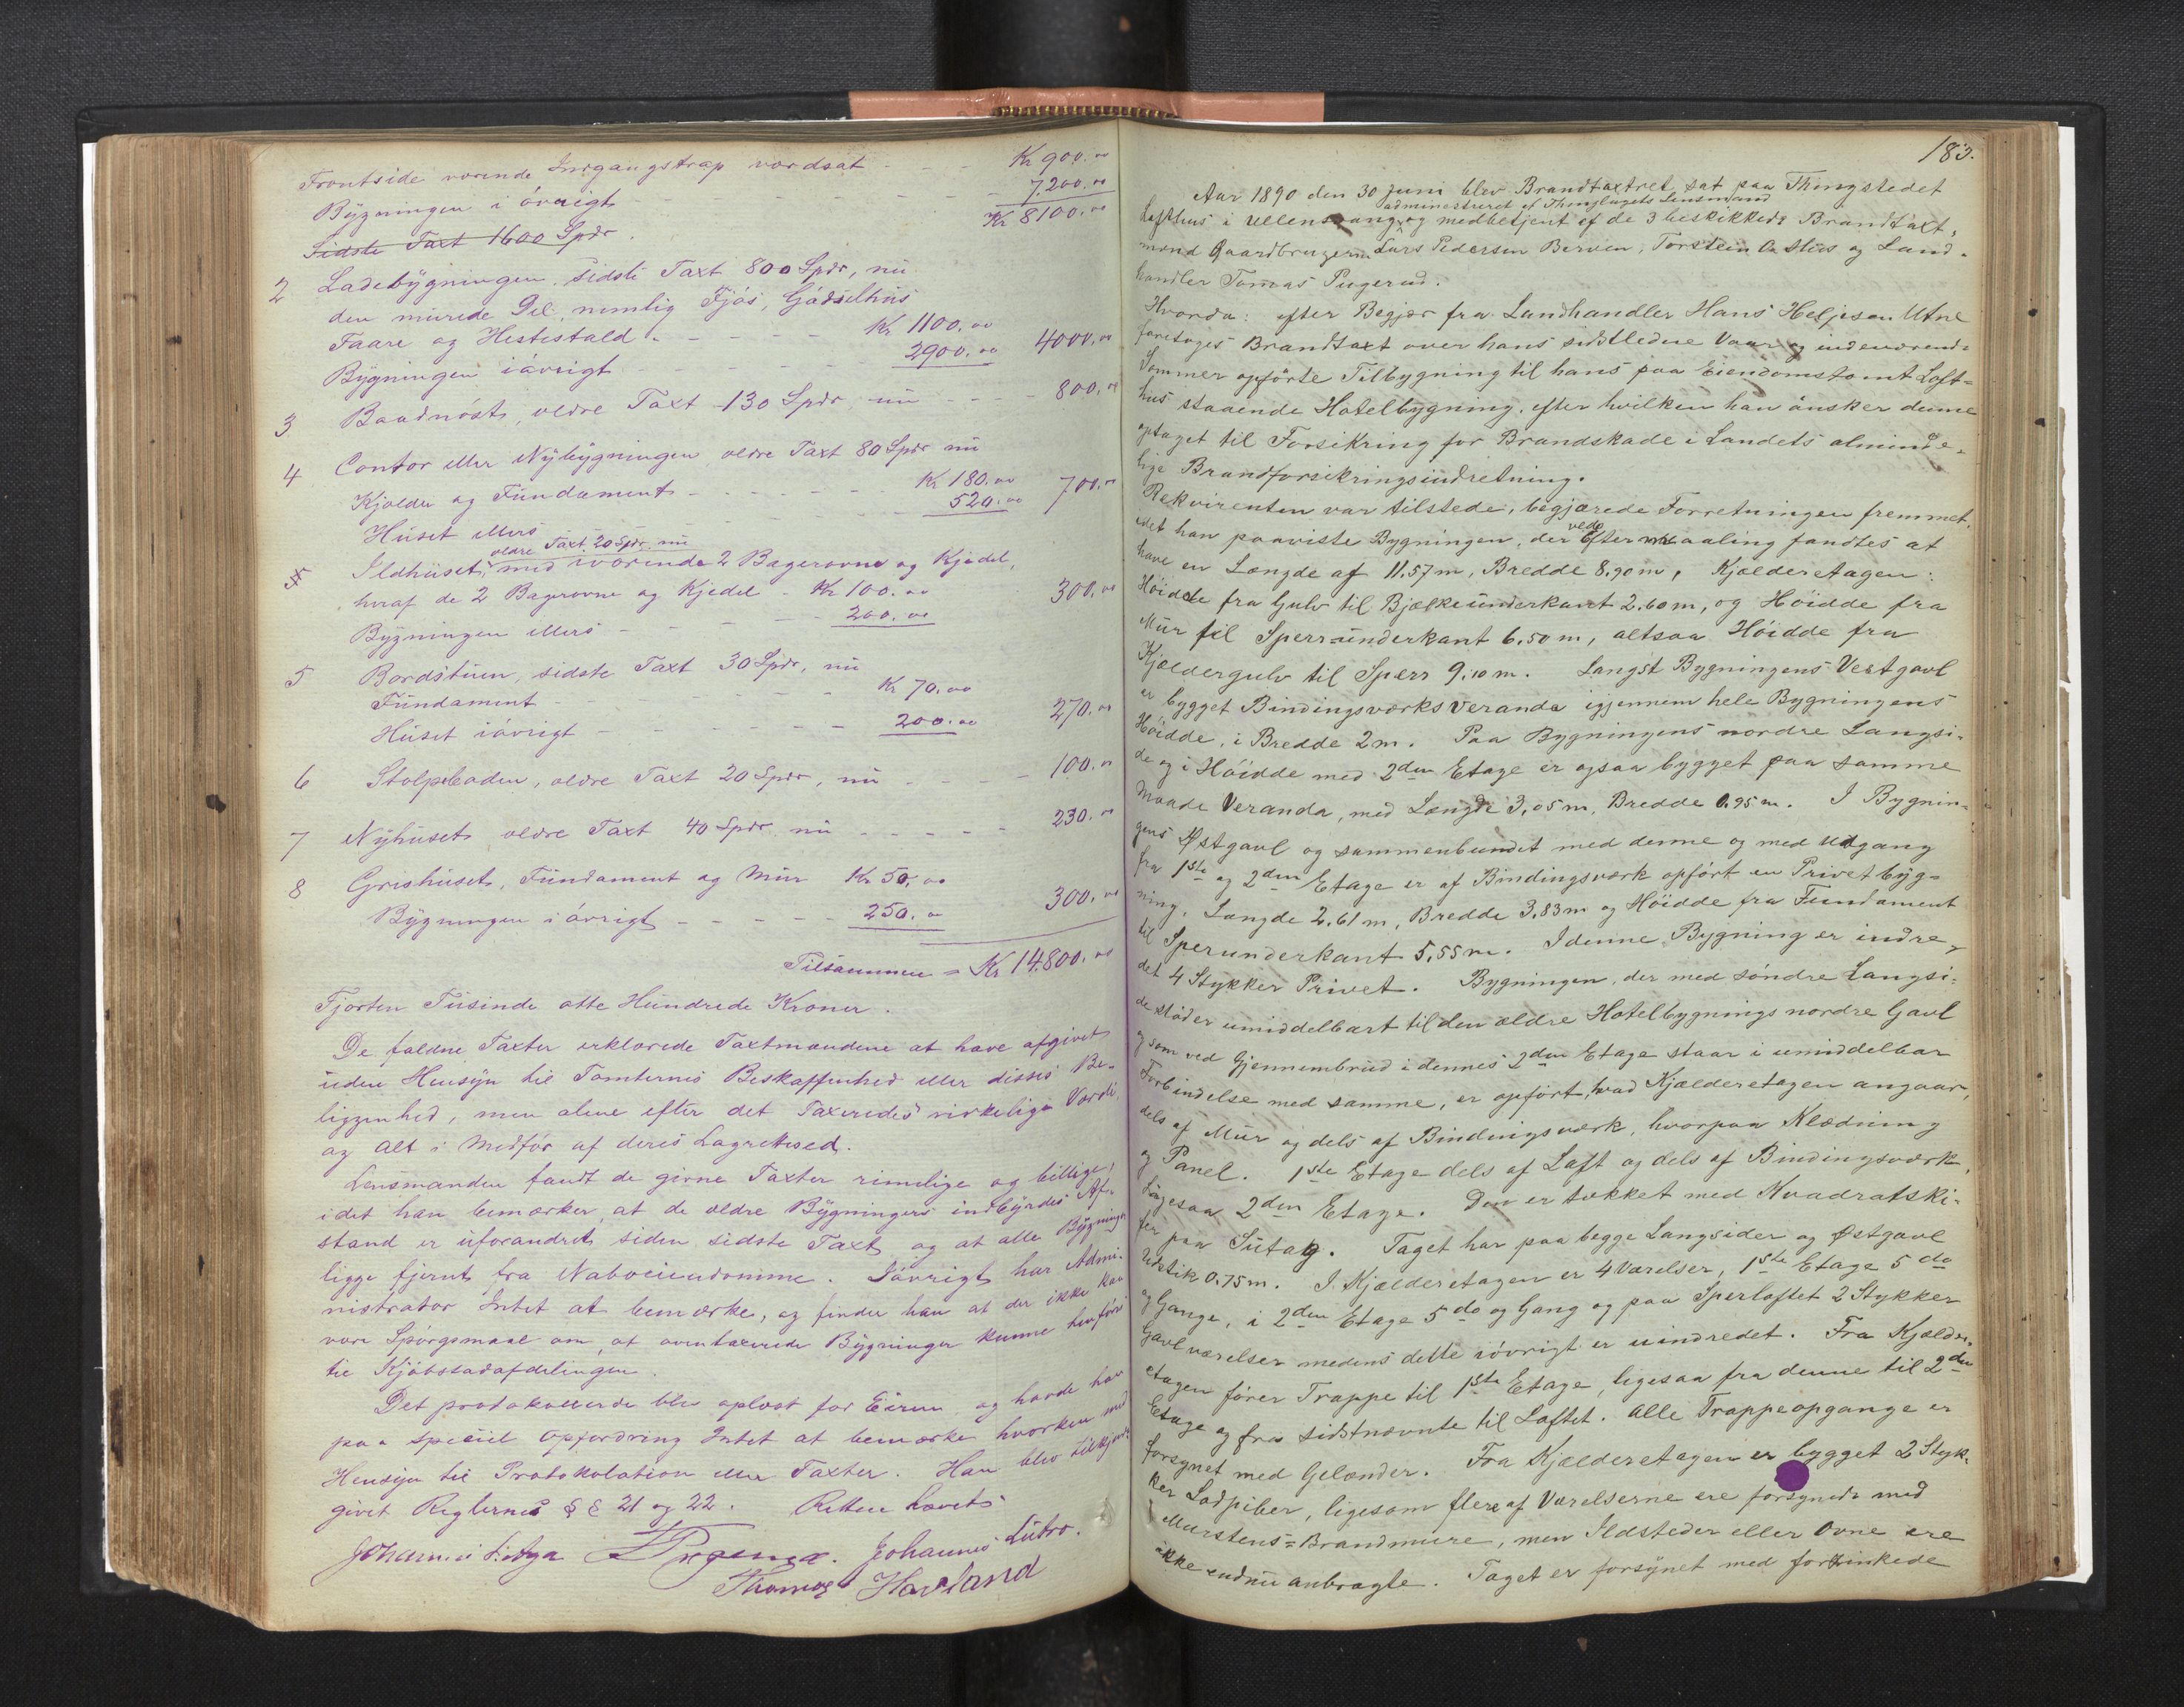 Frontside værende Indgangstrap værdsat - - - Kr 900.00
Bygningen i övrigt - - - - - - 7200.00
Kr 8100.00
Sidste Taxt 1600 Spdr
2 Ladebygningen, sidste Taxt 800 Spdr, nu
den murede Del, nemlig Fjös, Gjödselhus
Faare og Hestestald. - - - - Kr 1100.00
Bygningen iövrigt - - - - 2900.00 4000.00
3 Baadnöst, ældre Taxt 130 Spdr, nu - - - - 800.00
4 Contor eller Nybygningen ældre Taxt 80 Spdr nu
Kjælder og Fundament - - - - - Kr 180.00
Huset ellers - - - - - 520.00 700.00
ældre Taxt 20 Spdr. nu
5 Ildhuset, med iværende 2 Bagerovne og Kjedel,
hvraf de 2 Bagerovne og Kjedel - Kr 100.00
Bygningen ellers - - - - - 200.00 300.00
5 Bordstuen, sidste Taxt 30 Spdr, nu
Fundament - - - - - Kr 70.00
Huset iövrigt - - - - - 200.00 270.00
6 Stolpeboden, ældre Taxt 20 Spdr, nu - - - - 100.00
7 Nyhuset ældre Taxt 40 Spdr nu - - - - - 230.00
8 Grishuset, Fundament og Mur Kr 50.00
Bygningen i övrigt - - - - - 250.00 300.00
Tilsammen = Kr 14800.00
Fjorten Tusinde otte Hundrede Kroner.
De faldne Taxter erklærede Taxtmændene at have afgivet
uden Hensyn til Tomternes Beskaffenhed eller disses Be-
liggenhed, men alene efter det Taxeredes virkelige Værdi,
og alt i Medför af deres Lagrettesed.
Lensmanden fandt de givne Taxter rimelige og billige,
idet han bemærker, at de ældre Bygningers indbyrdes Af-
stand er uforandret siden sidste Taxt og at alle Bygninger
ligge fjernt fra Naboeiendomme. Iövrigt har Admi-
nistrator Intet at bemærke, og finder han at der ikke kan
være Spörgsmaal om, at ovintaxerede Bygninger kunne henföres
til Kjöbstadafdelingen.
Det protokollerede blev oplæst for Eieren og havde han
paa speciel Opfordring Intet at bemærke hverken med
Hensyn til Protokolation eller Taxter. Han blev tilkjende-
givet Reglernes §§ 21 og 22. Retten hævet
Johannes L. Aga Johannes Lutro.
Thomas Haaland
183.
Aar 1890 den 30 Juni blev Brandtaxtret sat paa Thingstedet
administreret af Thinglagets Lensmand
Lofthus i Ullensvang, og medbetjent af de 3 beskikkede Brandtaxt-
mænd Gaardbrugerne Lars Pedersen Berven, Torstein O. Hus og Land-
handler Tomas Pugerud.
Hvorda: efter Begjær fra Landhandler Hans Heljesen Utne
foretoges Brandtaxt over hans sidstledne Vaar og indeværende
Sommer opförte Tilbygning til hans paa Eiendomstomt Loft-
hus staaende Hotelbygning, efter hvilken han önsker denne
optaget til Forsikring for Brandskade i Landets alminde-
lige Brandforsikringsindretning.
Rekvirenten var tilstede, begjærede Forretningen fremmet,
idet han paaviste Bygningen, der ved Eftermaaling fandtes at
have en Længde af 11.57 m, Bredde 8.90 m, Kjælderetagen:
Höidde fra Gulv til Bjælkeunderkant 2.60 m, og Höidde fra
Mur til Sperr=underkant 6.50 m, altsaa Höidde fra
Kjældergulv til Sperr 9.10 m. Langst Bygningens Vestgavl
er bygget Bindingsværks Veranda igjennem hele Bygningens
Höidde, i Bredde 2 m. Paa Bygningens nordre Langsi-
de og i Höidde med 2den Etage er ogsaa bygget paa samme
Maade Veranda, med Længde 3,05 m, Bredde 0.95 m. I Bygnin-
gens Østgavl og sammenbundet med denne og med Udgang
fra 1ste og 2den Etage er af Bindingsværk opfört en Privetbyg-
ning, Længde 2,61 m, Bredde 3,83 m og Höidde fra Fundament
til Sperunderkant 5,55 m. I denne Bygning er indre-
det 4 Stykker Privet. Bygningen, der med söndre Langsi-
de stöder umiddelbart til den ældre Hotelbygnings nordre Gavl
og som ved Gjennembrud i dennes 2den Etage staar i umiddelbar
Forbindelse med samme, er opfört, hvad Kjælderetagen angaar,
dels af Mur og dels af Bindingsværk, hvorpaa Klædning
og Panel. 1ste Etage dels af Laft og dels af Bindingsværk,
ligesaa 2den Etage. Den er tækket med Kvadratski-
fer paa Sutag. Taget har paa begge Langsider og Østgavl
Udstik 0.75 m. I Kjælderetagen er 4 Værelser, 1ste Etage 5 do
og Gange, i 2den Etage 5 do og Gang og paa Sperloftet 2 Stykker
Gavlværelser medens dette iövrigt er uindredet. Fra Kjælder-
etagen förer Trappe til 1ste Etage, ligesaa fra denne til 2den
Etage og fra sidstnævnte til Loftet. Alle Trappeopgange er
forsynet med Gelænder. Fra Kjælderetagen er bygget 2 Styk-
ker Lodpiber, ligesom flere af Værelserne ere forsynede med
Murstens=Brandmure, men Ildsteder eller Ovne ere
ikke endnu anbragte. Taget er forsynet med forzinkede